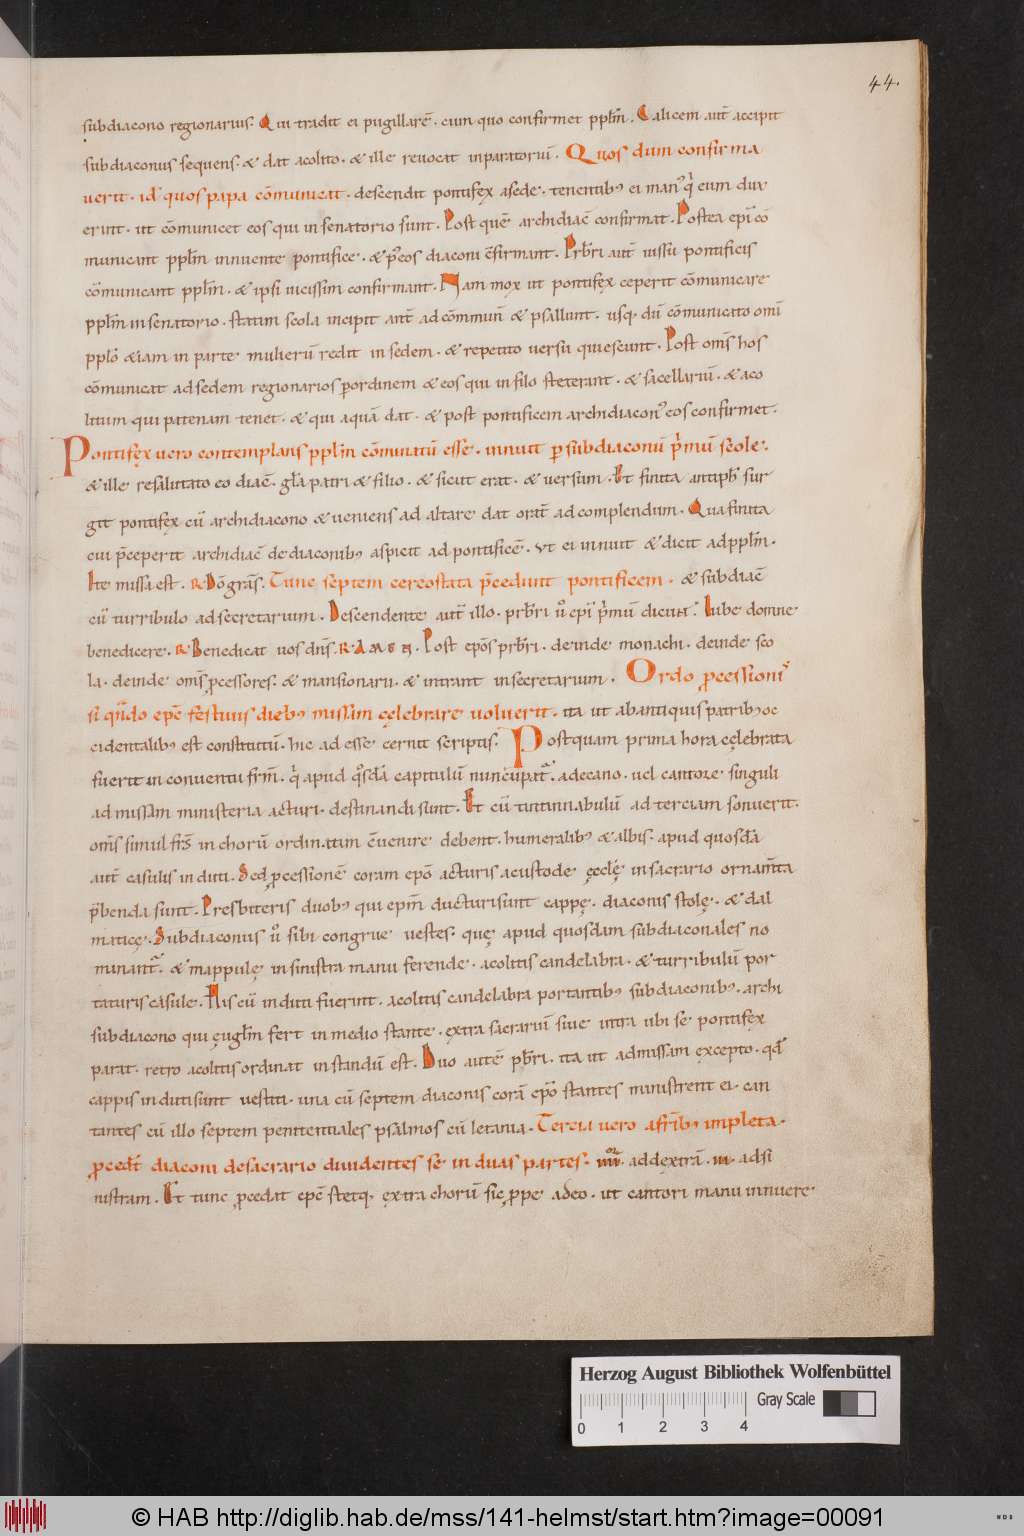 44.
subdiacono regionarius. Qui tradit ei pugillarē. cum quo confirmet pplm̄. Calicem aut̄ accipit
subdiaconus sequens. & dat acolito. & ille revocat inparatoriū. Quos dum confirma
verit. id quos papa cōmunicat. descendit pontifex asede. tenentibꝰ ei manꝰ q̇ eum dux
erint. ut cōmunicet eos qui in senatorio sunt. Post quē archidiac̄ confirmat. Postea epī cō
municant pplm̄ innuente pontifice. & p̄ eos diaconi c̄firmant. Prb̄ri aut̄ iussu pontificis
cōmunicant pplm̄. & ipsi vicissim confirmant. Nam mox ut pontifex ceperit cōmunicare
pplm̄ in senatorio. statim scola incipit ant̄ ad cōmmuñ & psallunt. usq. dū cōmunicato omī
pplō &iam in parte mulierū redit in sedem. & repetito versu quiescunt. Post om̄s hos
cōmunicat ad sedem regionarios ꝑordinem & eos qui in filo steterant. & sacellariū. & aco
litum qui patenam tenet. & qui aquā dat. & post pontificem archidiaconꝰ eos confirmet.
Pontifex vero contemplans pplm̄ cōmunatū esse. innuit ꝑ subdiaconū p̄mū scole.
& ille resalutato eo diac̄. gl̄a patri & filio. & sicut erat. & versum. Et finita antiph̄ sur
git pontifex cū archidiacono & veniens ad altare dat orat̄ ad complendum. Qua finita
cui p̄ceperit archidiac̄ de diaconibꝰ aspicit ad pontificē. vt ei innuit & dicit ad pplm̄.
Ite missa est. R. Dō grās. Tunc septem cereostata p̄cedunt pontificem. & subdiac̄
cū turribulo ad secretarium. Descendente aut̄ illo. prb̄ri u̇ epī p̄mū dicunt. Iube domne
benedicere. R. Benedicat vos dn̄s. R. Amen. Post epōs prb̄ri. deinde monachi. deinde sco
la. deinde om̄s ꝓcessores. & mansionarii. & intrant in secretarium. Ordo ꝓcessioni
si qn̄do epc̄ festivis diebꝰ missam celebrare voluerit. ita ut ab antiquis patribꝰ oc
cidentalibꝰ est constitutū. hic ad esse cernit scriptis. Postquam prima hora celebrata
fuerit in conventu frm̄. q̇ apud qꝰsdā capitulū nuncupat̄. a decano. vel cantore singuli
ad missam ministeria acturi. destinandi sunt. Et cū tintinnabulū ad terciam sonuerit.
om̄s simul frs̄ in chorū ordinatim c̄venire debent. humeralibꝰ & albis. apud quosdā
aut̄ casulis induti. Sed ꝓcessionē coram epō acturis a custode ecclę in sacrario ornam̄ta
p̄benda sunt. Presbiteris duobꝰ qui epm̄ ducturi sunt cappę. diaconis stolę. & dal
maticę. Subdiaconus u̇ sibi congrue vestes. quę apud quosdam subdiaconales no
minant̄. & mappulę in sinistra manu ferende. acolitis candelabra. & turribulū por
taturis casule. His cū induti fuerint. acolitis candelabra portantibꝰ subdiaconibꝰ. archi
subdiacono qui euglm̄ fert in medio stante. extra sacrariū sive intra ubi se pontifex
parat. retro acolitis ordinat in standū est. Duo autē pb̄ri. ita ut ad missam excepto. qd̄
cappis induti sunt vestiti. una cū septem diaconis corā epō stantes ministrent ei. can
tantes cū illo septem penitentiales psalmos cū letania. Tercia vero a frībꝰ impleta.
ꝓcedt̄ diaconi de sacrario dividentes se in duas partes. iiii. ad dextrā. iii. ad si
nistram. Et tunc ꝓcedat epc̄ stetq. extra chorū sic prope adeo. ut cantori manu innuere
Herzog August Bibliothek Wolfenbüttel
Gray Scale
0 1 2 3 4
© HAB http://diglib.hab.de/mss/141-helmst/start.htm?image=00091